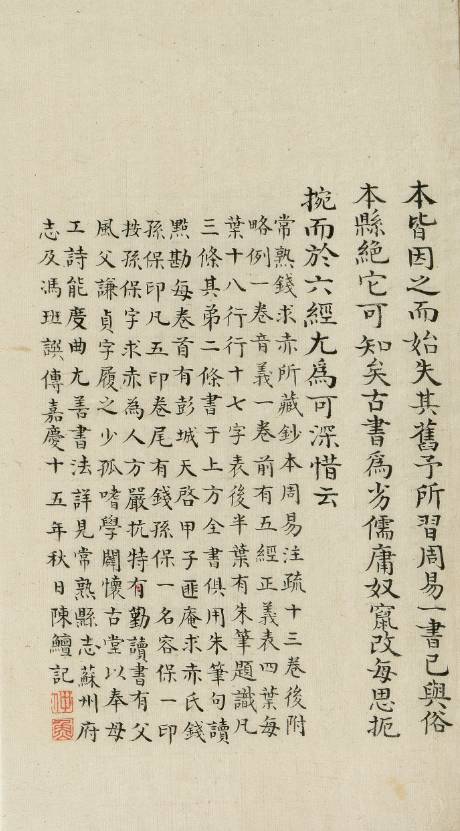 本皆因之而始失其舊予所習周易一書已與俗
本縣絕它可知矣古書為劣儒庸奴竄改每思扼
捥而於六經尤為可深惜云
常熟錢求赤所藏鈔本周易注疏十三卷後附
略例一卷音義一卷前有五經正義表四葉每
葉十八行行十七字表後半葉有朱筆題識凡
三條其弟二條書于上方全書俱用朱筆句讀
㸃勘每卷首有彭城天啓甲子匪庵求赤氏錢
孫保印凡五印卷尾有錢孫保一名容保一印
按孫保字求赤為人方嚴抗特有勤讀書有父
風父謙貞字履之少孤嗜學闢懷古堂以奉母
工詩能度曲尤善書法詳見常熟縣志蘇州府
志及馮班誤傳嘉慶十五年秋日陳鱣記
仲魚